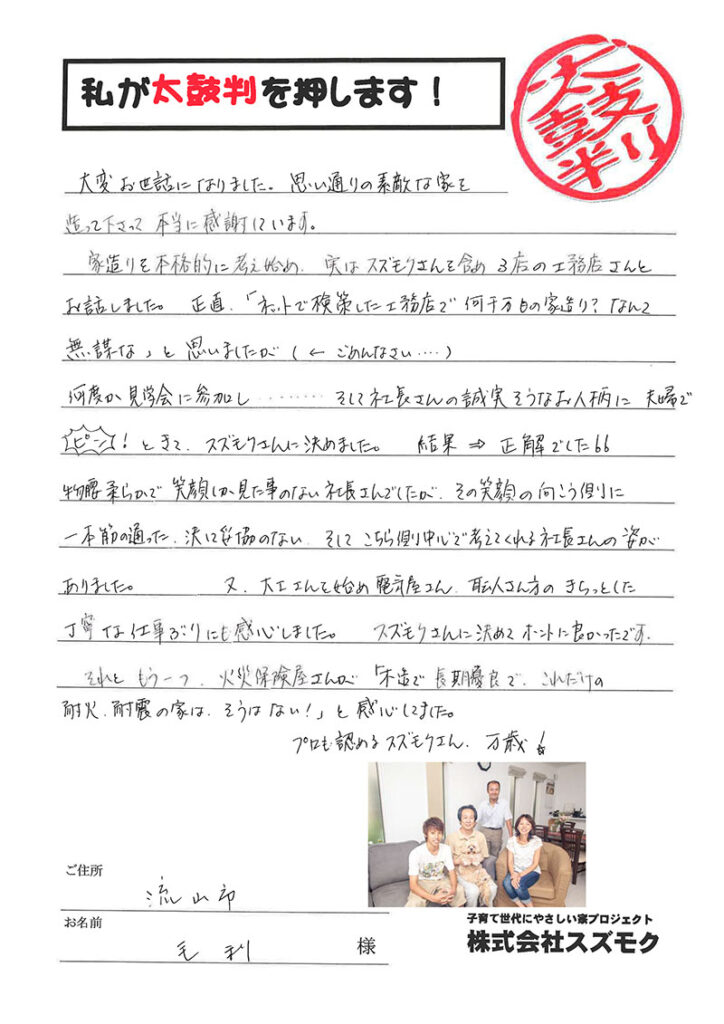 私が太鼓判を押します！
太鼓判
大変お世話になりました。思い通りの素敵な家を
造って下さって本当に感謝しています。
家造りを本格的に考え始め、実はスズモクさんを含め3店の工務店さんと
お話しました。正直、「ネットで検策した工務店で何千万円の家造り?なんて
無謀な」と思いましたが(←ごめんなさい‥‥)
何度か見学会に参加し‥‥‥‥そして社長さんの誠実そうなお人柄に夫婦で
ピン!ときて、スズモクさんに決めました。結果⇒正解でした
物腰柔らかで笑顔しか見た事のない社長さんでしたが、その笑顔の向こう側に
一本筋の通った、決して妥協のない、そしてこちら側中心で考えてくれる社長さんの姿が
ありました。又、大工さんを始め電気屋さん、職人さん方のきちっとした
丁寧な仕事ぶりにも感心しました。スズモクさんに決めてホントに良かったです。
それともう一つ、火災保険屋さんが「木造で長期優良で、これだけの
耐火、耐震の家は、そうはない!」と感心してました。
プロも認めるスズモクさん、万歳!
ご住所
流山市
お名前
毛利 様
子育て世代にやさしい家プロジェクト
株式会社スズモク